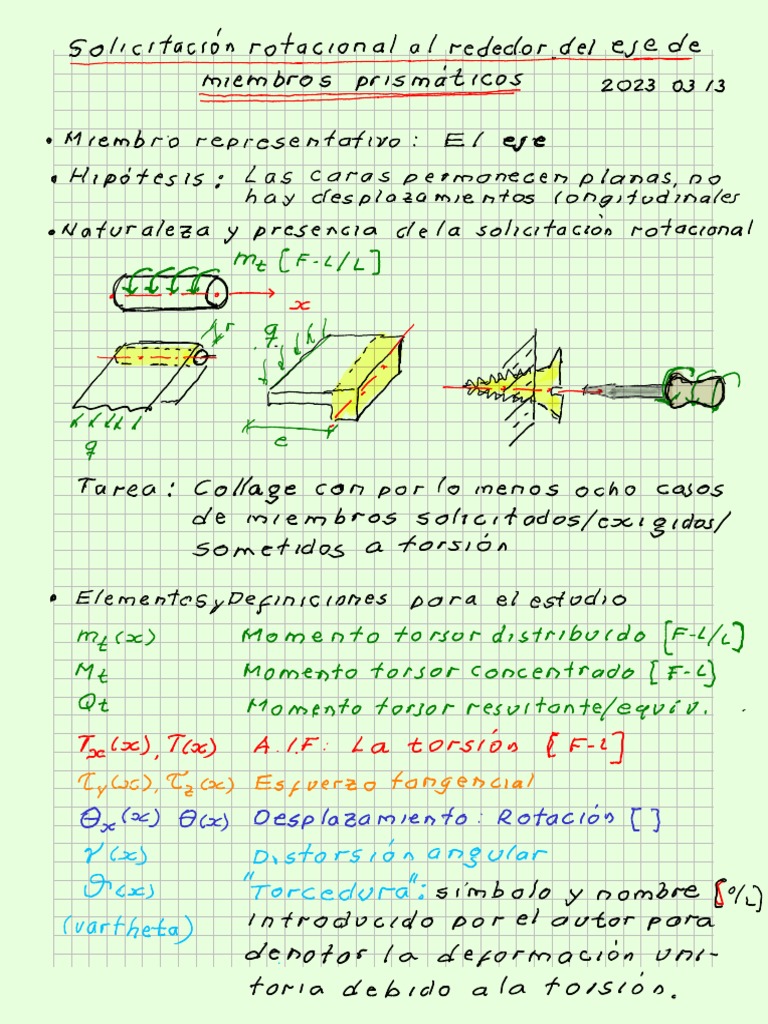 Solicitación rotacional al rededor del eje de
miembros prismáticos 2023 03 13
• Miembro representativo: El eje
• Hipótesis: Las caras permanecen planas, no
hay desplazamientos longitudinales
• Naturaleza y presencia de la solicitación rotacional
mt [F-L/L]
x
r
q
q
e
Tarea: Collage con por lo menos ocho casos
de miembros solicitados/exigidos/
sometidos a torsión
• Elementos y Definiciones para el estudio
mt(x) Momento torsor distribuido [F-L/L]
Mt Momento torsor concentrado [F-L]
Qt Momento torsor resultante/equiv.
Tx(x), T(x) A.I.F: La torsión [F-L]
τy(x), τz(x) Esfuerzo tangencial
θx(x) θ(x) Desplazamiento: Rotación [ ]
γ(x) Distorsión angular
ϑ(x) "Torcedura": símbolo y nombre [°/L]
(vartheta) introducido por el autor para
denotar la deformación uni-
toria debido a la torsión.